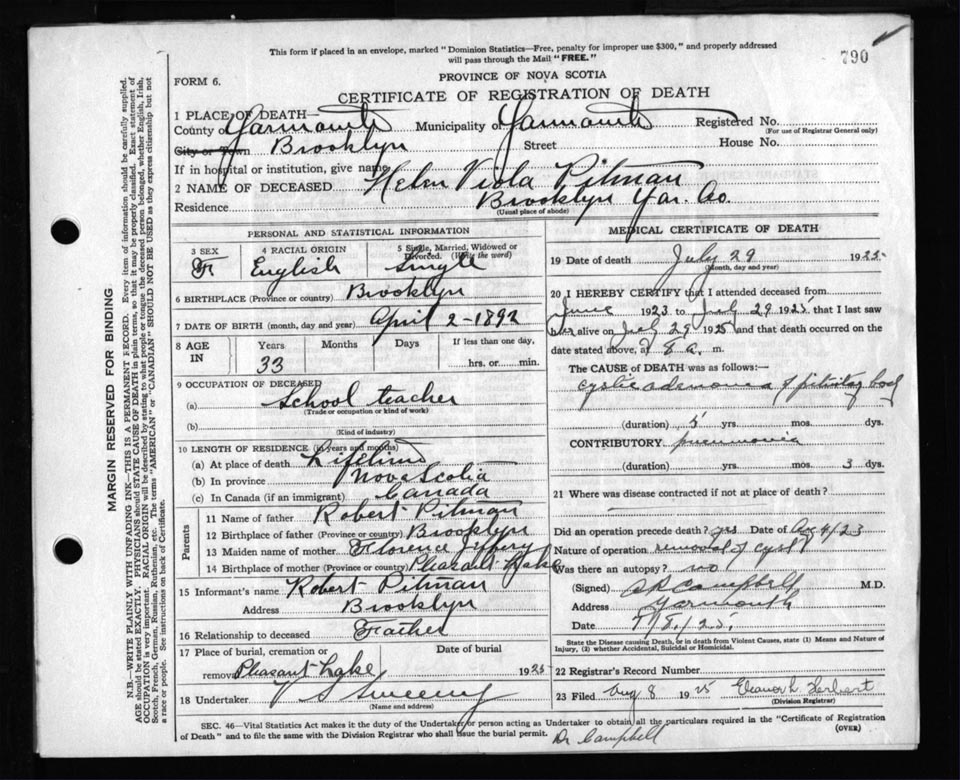 This form if placed in an envelope, marked "Dominion Statistics—Free, penalty for improper use $300," and properly addressed
will pass through the Mail "FREE."
790
FORM 6.
PROVINCE OF NOVA SCOTIA
CERTIFICATE OF REGISTRATION OF DEATH
1 PLACE OF DEATH—
County of Yarmouth Municipality of Yarmouth Registered No.
(For use of Registrar General only)
City or Town Brooklyn Street House No.
If in hospital or institution, give name
2 NAME OF DECEASED Helen Viola Pitman
Residence Brooklyn Yar. Co.
(Usual place of abode)
PERSONAL AND STATISTICAL INFORMATION
3 SEX 4 RACIAL ORIGIN 5 Single, Married, Widowed or
Divorced. (Write the word)
F English Single
6 BIRTHPLACE (Province or country) Brooklyn
7 DATE OF BIRTH (month, day and year) April 2-1892
8 AGE IN Years Months Days If less than one day,
33 hrs. or min.
9 OCCUPATION OF DECEASED
(a) School teacher
(Trade or occupation or kind of work)
(b)
(Kind of industry)
10 LENGTH OF RESIDENCE (in years and months)
(a) At place of death Lifetime
(b) In province Nova Scotia
(c) In Canada (if an immigrant) Canada
Parents
11 Name of father Robert Pitman
12 Birthplace of father (Province or country) Brooklyn
13 Maiden name of mother Florence Jeffery
14 Birthplace of mother (Province or country) Pleasant Lake
15 Informant's name Robert Pitman
Address Brooklyn
16 Relationship to deceased Father
17 Place of burial, cremation or Date of burial
removal Pleasant Lake 1925
18 Undertaker Sweeny
(Name and address)
MEDICAL CERTIFICATE OF DEATH
19 Date of death July 29 1925
(Month, day and year)
20 I HEREBY CERTIFY that I attended deceased from
June 1923 to July 29 1925 that I last saw
her alive on July 29 1925 and that death occurred on
date stated above, at 8 a. m.
The CAUSE OF DEATH was as follows:
cystic adenoma of pituitary body
(duration) 5 yrs. mos. dys.
CONTRIBUTORY pneumonia
(duration) yrs. mos. 3 dys.
21 Where was disease contracted if not at place of death?
Did an operation precede death? yes Date of Aug 4/23
Nature of operation removal of cyst
Was there an autopsy? no
(Signed) Campbell M.D.
Address Yarmouth
Date
State the Disease causing Death, or in death from Violent Causes, state (1) Means and Nature of
Injury, (2) whether Accidental, Suicidal or Homicidal.
22 Registrar's Record Number
23 Filed Aug 8 1925 Eleanor L Herbert
(Division Registrar)
SEC. 46—Vital Statistics Act makes it the duty of the Undertaker or person acting as Undertaker to obtain all the particulars required in the "Certificate of Registration
of Death" and to file the same with the Division Registrar who shall issue the burial permit.
(OVER)
Dr Campbell
MARGIN RESERVED FOR BINDING
N.B.—WRITE PLAINLY WITH UNFADING INK—THIS IS A PERMANENT RECORD. Every item of information should be carefully supplied.
AGE should be stated EXACTLY. PHYSICIANS should STATE CAUSE OF DEATH in plain terms, so that it may be properly classified. Exact statement of
OCCUPATION is very important. RACIAL ORIGIN will be described by stating to what people or tongue the deceased person belonged, whether English, Irish,
Scotch, French, German, Russian, Ruthenian, etc. The terms "AMERICAN" or "CANADIAN" SHOULD NOT BE USED as they express citizenship but not
a race or people. See instructions on back of Certificate.